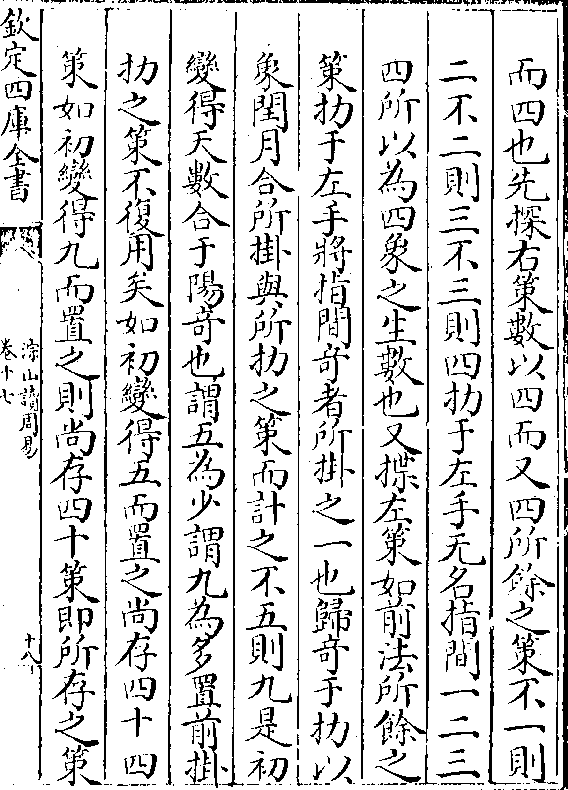 而四也先揲右策數以四而又四所餘之策不一則
二不二則三不三則四扐于左手无名指間一二三
四所以為四象之生數也又揲左策如前法所餘之
策扐于左手將指間竒者所掛之一也歸竒于扐以
象閏月合所掛與所扐之策而計之不五則九是初
變得天數合于陽竒也謂五為少謂九為多置前掛
扐之策不復用矣如初變得五而置之尚存四十四
策如初變得九而置之則尚存四十策即所存之策
欽定四庫全書
淙山讀周易
卷十七
十八